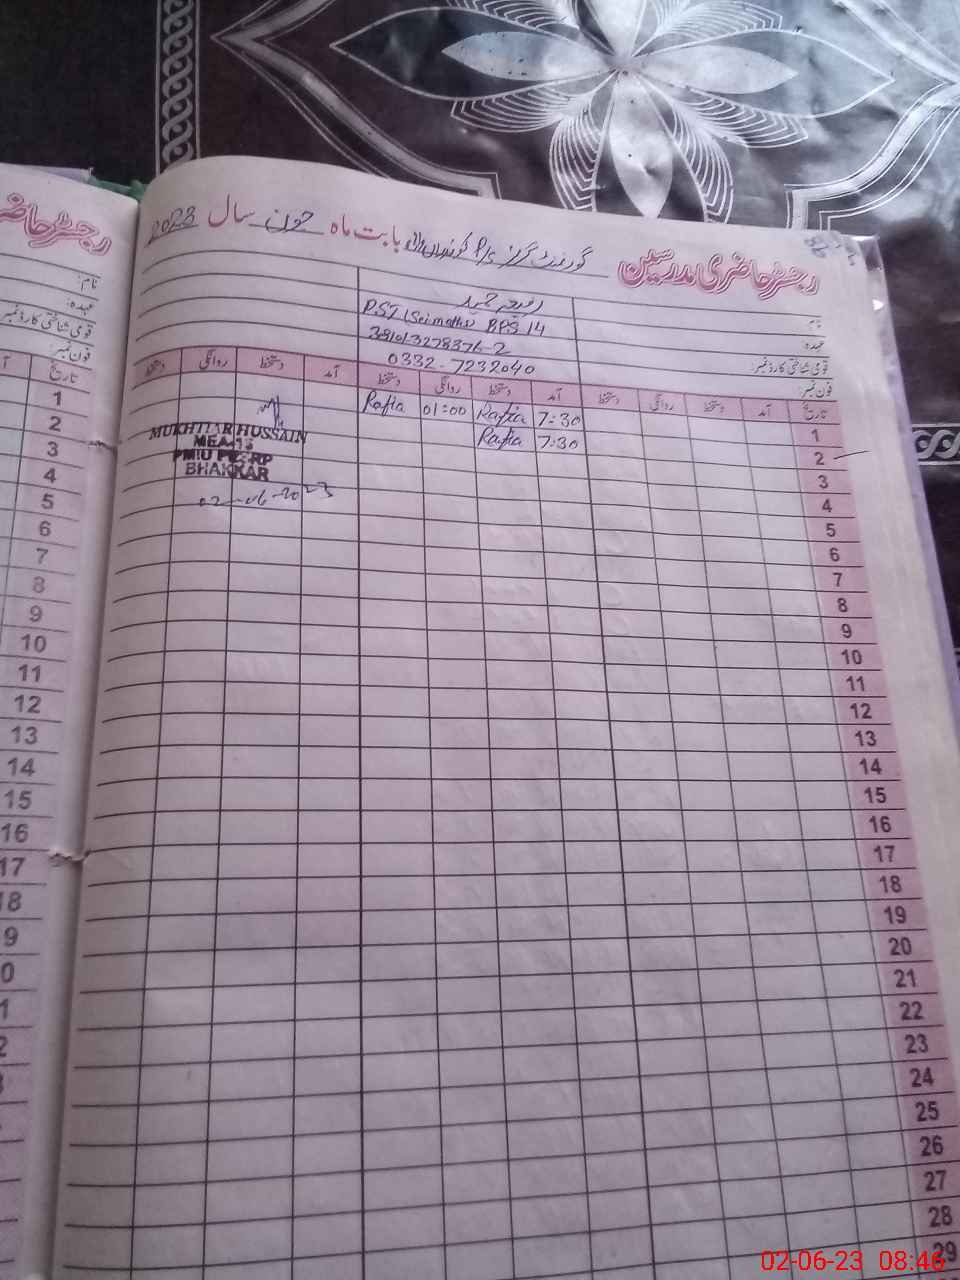 رجسٹر حاضری مدرسین گورنمنٹ گرلز P/S بابت ماہ جون سال 2023
نام:
عہدہ:
قومی شناختی کارڈ نمبر:
فون نمبر:
PST (Sci maths) BPS 14
38101-3278376-2
0332-7232040
تاریخ آمد دستخط روانگی دستخط آمد دستخط روانگی دستخط آمد دستخط روانگی دستخط
1 7:30 Rafia 01:00 Rafia
2 7:30 Rafia
3
4
5
6
7
8
9
10
11
12
13
14
15
16
17
18
19
20
21
22
23
24
25
26
27
28
29
MUKHTIAR HUSSAIN
MEA-13
PMIU PESRP
BHAKKAR
02-06-2023
رجسٹر حاضر
نام:
عہدہ:
قومی شناختی کارڈ نمبر
فون نمبر:
تاریخ
1
2
3
4
5
6
7
8
9
10
11
12
13
14
15
16
17
18
9
0
1
2
02-06-23 08:46